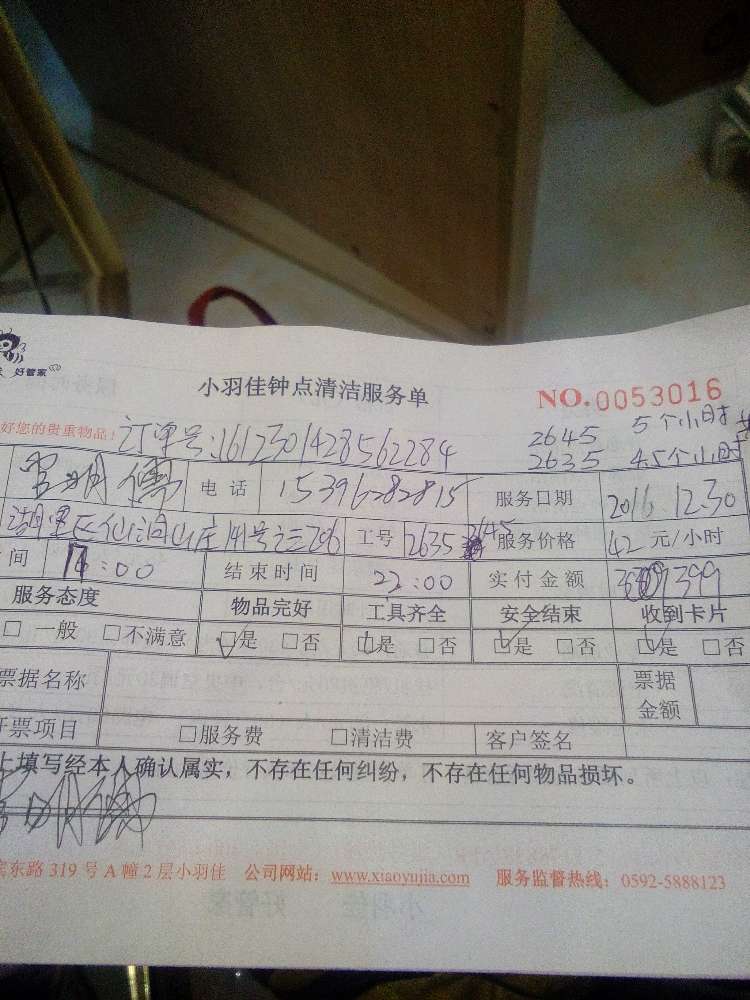 好管家
小羽佳钟点清洁服务单
NO.0053016
好您的贵重物品!
订单号:1612301428562284
2645 5个小时
2635 4.5个小时
电话 15396282815 服务日期 2016.12.30
湖里区仙洞山庄 工号 2635 2645 服务价格 42 元/小时
间 :00 结束时间 22:00 实付金额 399
服务态度 物品完好 工具齐全 安全结束 收到卡片
□ 一般 □不满意 □是 □否 □是 □否 □是 □否 □是 □否
票据名称 票据金额
开票项目 □服务费 □清洁费 客户签名
上填写经本人确认属实，不存在任何纠纷，不存在任何物品损坏。
东路 319 号 A 幢 2 层小羽佳 公司网站：www.xiaoyujia.com 服务监督热线：0592-5888123